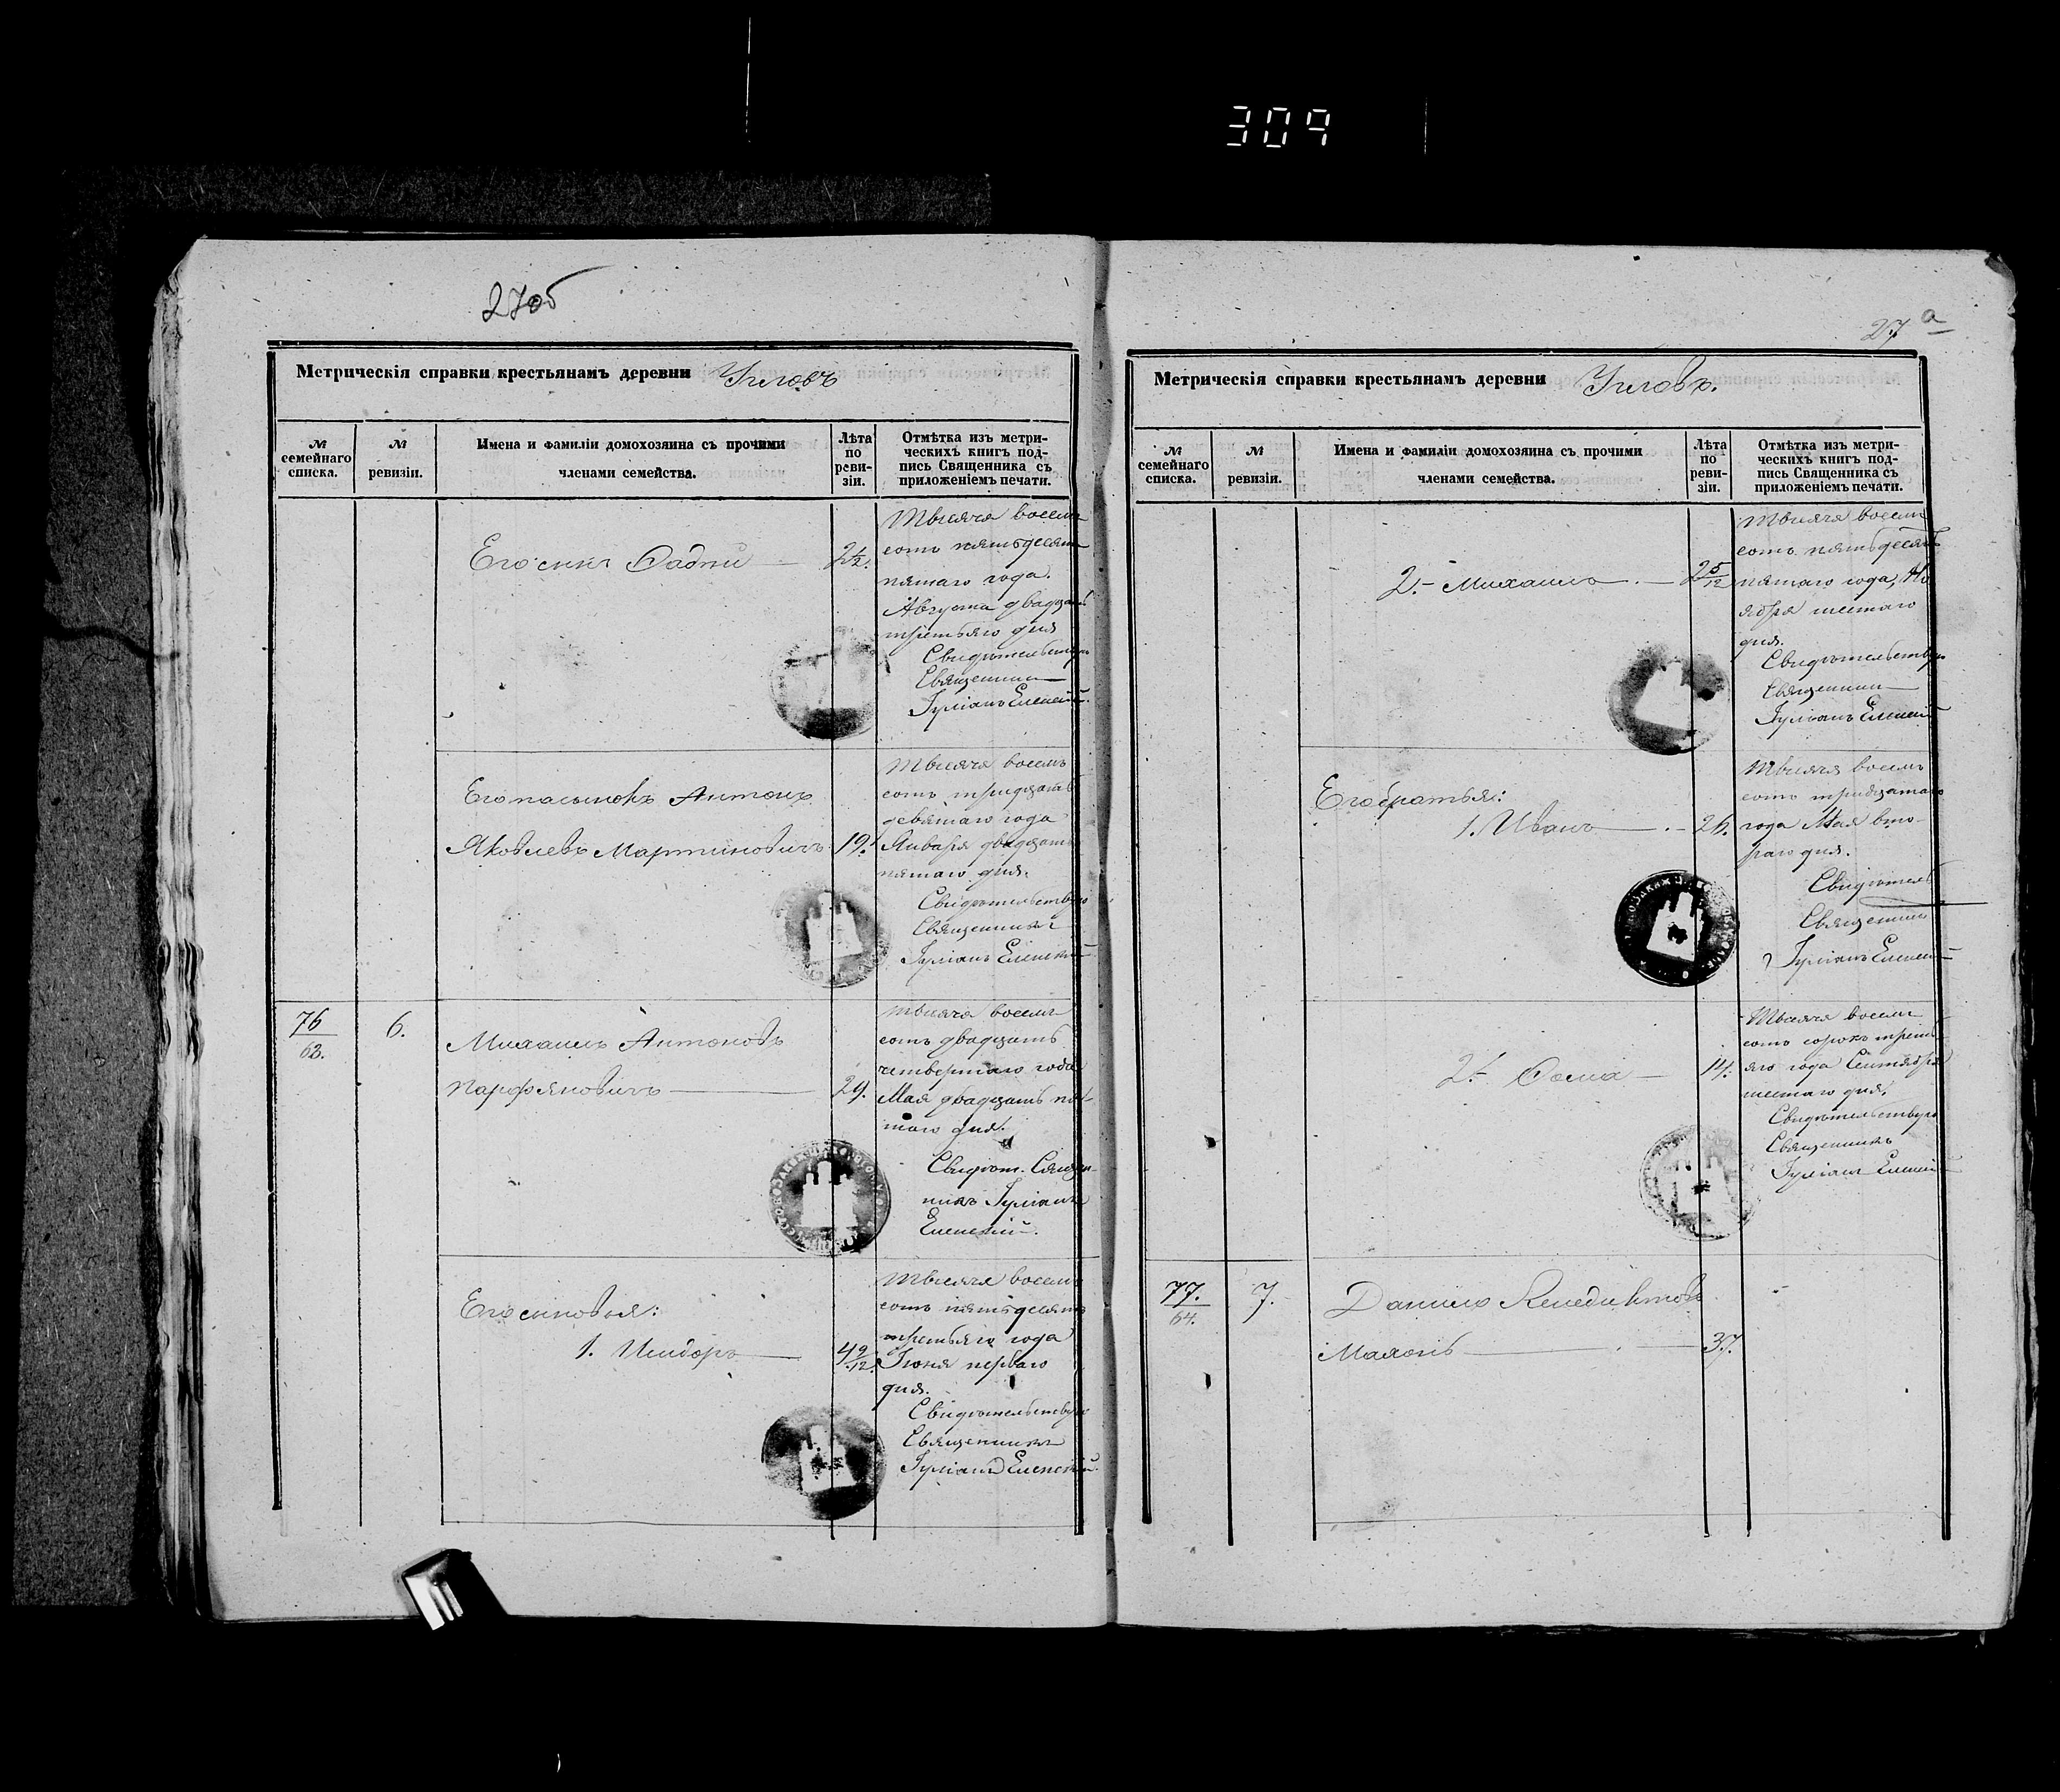 309
27об
Метрическія справки крестьянамъ деревни Угловъ
№ семейнаго списка.
№ ревизіи.
Имена и фамиліи домохозяина съ прочими членами семейства.
Лѣта по реви-зіи.
Отмѣтка изъ метри-
ческихъ книгъ под-
пись Священника съ
приложеніемъ печати.
Его сынъ
2 1/2.
Тысяча восемь
сотъ пятьдесятъ
пятаго года.
Августа двадцать
третьяго дня
Свидѣтельствую
Священникъ
Іуліанъ
Его пасынокъ Антонъ
Яковлевъ Мартиновичъ
19.
Тысяча восемь
сотъ тридцать
девятаго года
Января двадцать
пятаго дня.
Свидѣтельствую
Священникъ
Іуліанъ
76
62.
6.
Михаилъ Антоновъ
Парфяновичъ
29.
тысяча восемь
сотъ двадцать
четвертаго года
Мая двадцать пя-
таго дня.
Свидѣт. Священ-
никъ Іуліанъ
Его сыновья:
1. Исидоръ
4 9/12.
Тысяча восемь
сотъ пятьдесятъ
третьяго года
Іюня перваго
дня.
Свидѣтельствую
Священникъ
Іуліанъ
27 а
Метрическія справки крестьянамъ деревни Угловъ.
№ семейнаго списка.
№ ревизіи.
Имена и фамиліи домохозяина съ прочими членами семейства.
Лѣта по реви-зіи.
Отмѣтка изъ метри-
ческихъ книгъ под-
пись Священника съ
приложеніемъ печати.
2. Михаилъ
2 5/12
Тысяча восемь
сотъ пятьдесятъ
пятаго года, Но
ября шестаго
дня.
Свидѣтельствую
Священникъ
Іуліанъ
Его братья:
1. Иванъ
26.
Тысяча восемь
сотъ тридцатаго
года Мая вто-
раго дня.
Свидѣтель
Священникъ
Іуліанъ
2. Ѳома
14.
Тысяча восемь
сотъ сорокъ треть-
яго года Сентября
шестаго дня.
Свидѣтельствую
Священникъ
Іуліанъ
77.
64.
7.
Данило
37.